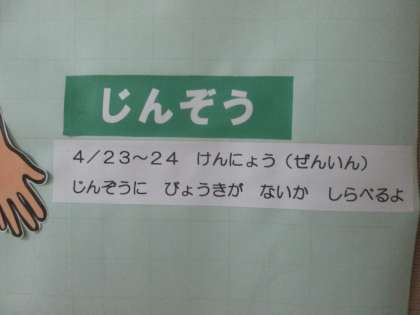 じんぞう
4/23~24 けんにょう(ぜんいん)
じんぞうに びょうきが ないか しらべるよ